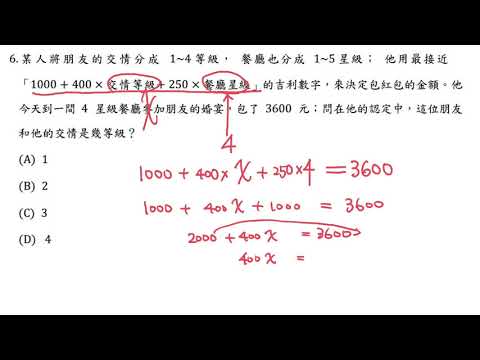 6.某人將朋友的交情分成 1~4 等級， 餐廳也分成 1~5 星級； 他用最接近
「1000 + 400 × 交情等級 + 250 × 餐廳星級」的吉利數字，來決定包紅包的金額。他
今天到一間 4 星級餐廳參加朋友的婚宴，包了 3600 元；問在他的認定中，這位朋友
和他的交情是幾等級？
x
4
(A) 1
1000 + 400 × x + 250 × 4 = 3600
(B) 2
1000 + 400x + 1000 = 3600
(C) 3
2000 + 400x = 3600
(D) 4
400x =